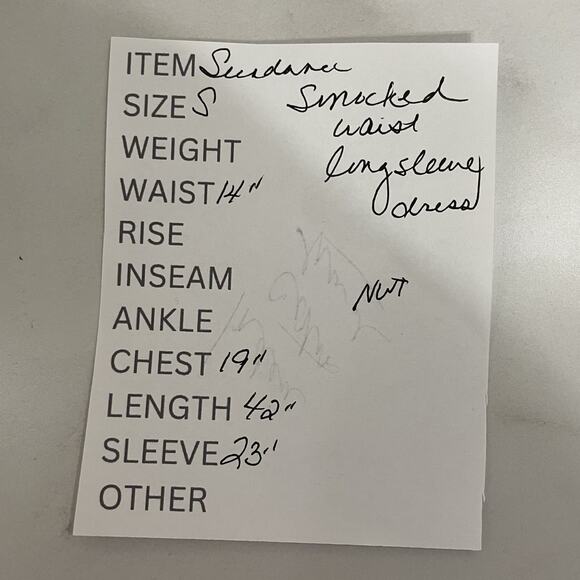 ITEM Sundance
SIZE S
Smocked
waist
longsleeve
dress
WEIGHT
WAIST 14"
RISE
INSEAM
NWT
ANKLE
CHEST 19"
LENGTH 42"
SLEEVE 23"
OTHER